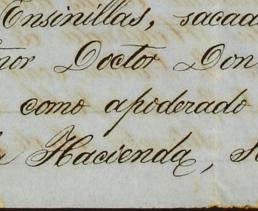 Ensinillas, sacada
Doctor Don
como apoderado
Hacienda,